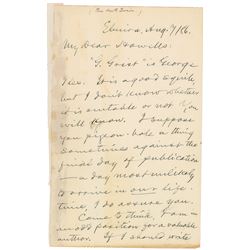 Elmira, Aug. 7/86.
My Dear Howells:
"G. Grist" is George
Iles. It is a good squib
but I don't know whether
it is suitable or not. You
will know. I suppose
you pigeon-hole a thing
sometimes against the
final day of publication
— a day most unlikely
to arrive in our life-
time, I do assure you.
Come to think, I am in
an odd position for a valuable
author. If I should write